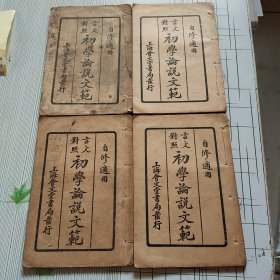 自修適用
言文對照
初學論說文範
上海會文堂書局發行
自修適用
言文對照
初學論說文範
上海會文堂書局發行
自修適用
言文對照
初學論說文範
上海會文堂書局發行
自修適用
言文對照
初學論說文範
上海會文堂書局發行